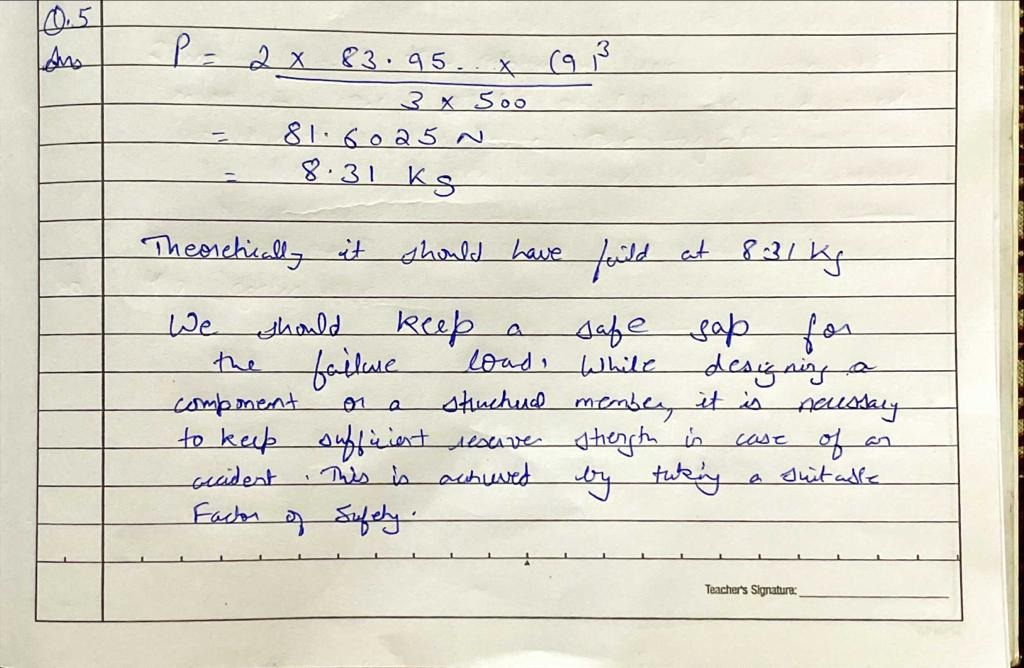 Q.5
Ans P = 2 x 83.95.. x (9)³
3 x 500
= 81.6025 N
= 8.31 Kg
Theoretically it should have faild at 8.31 Kg
We should keep a safe gap for
the failure load. While designing a
component or a structural member, it is necessary
to keep sufficient reserve strength in case of an
accident. This is achieved by taking a suitable
Factor of Safety.
Teacher's Signature: